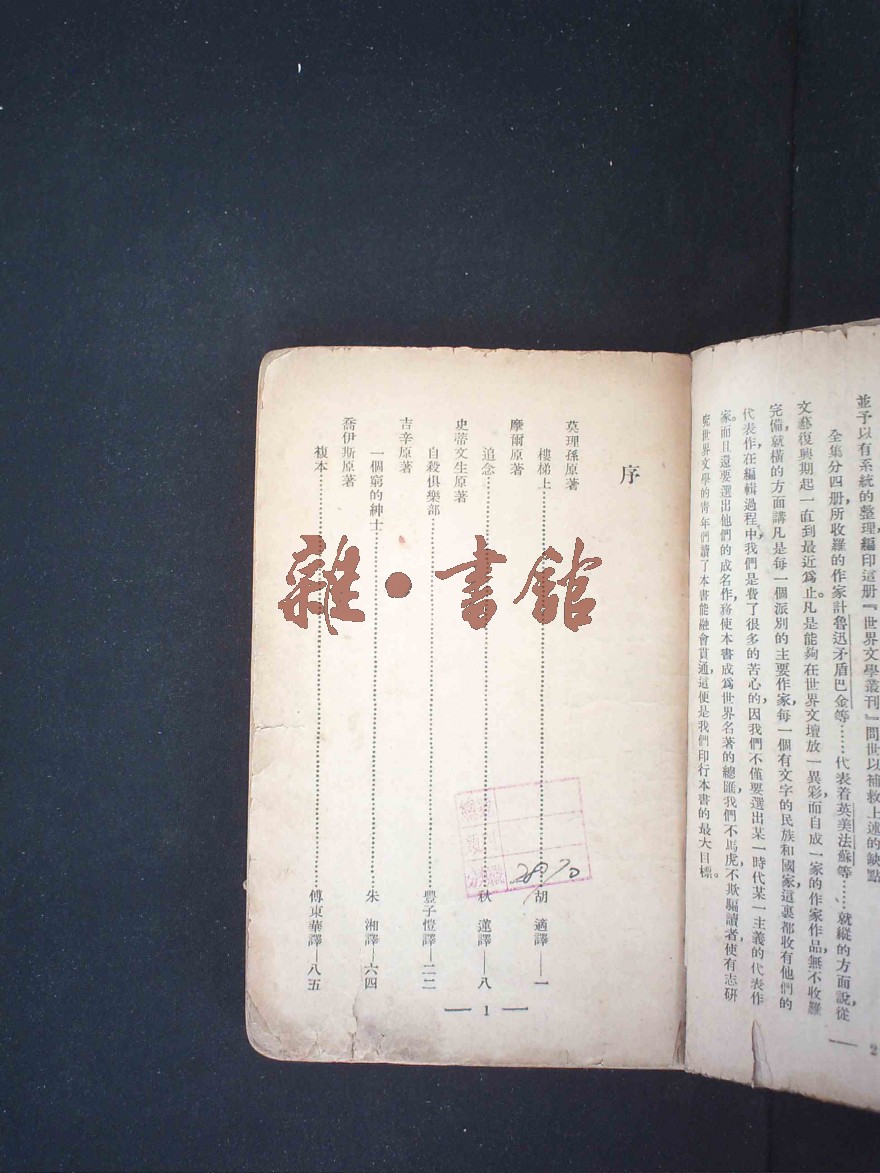 並予以有系統的整理,編印這册『世界文學叢刊』問世以補救上述的缺點
全集分四册,所收羅的作家計魯迅矛盾巴金等……代表着英美法蘇等……就縱的方面說,從
文藝復興期起一直到最近為止。凡是能夠在世界文壇放一異彩而自成一家的作家作品,無不收羅
完備,就橫的方面講凡是每一個派別的主要作家,每一個有文字的民族和國家,這裏都收有他們的
代表作在編輯過程中,我們是費了很多的苦心的,因我們不僅要選出某一時代某一主義的代表作
家。而且還要選出他們的成名作,務使本書成為世界名著的總匯,我們不馬虎,不欺騙讀者,使有志研
究世界文學的青年們讀了本書能融會貫通,這便是我們印行本書的最大目標。
2
序
莫理孫原著
樓梯上……胡適譯——一
摩爾原著
追念……秋蓮譯——八
史蒂文生原著
自殺俱樂部……豐子愷譯——二二
吉辛原著
一個窮的紳士……朱湘譯——六四
喬伊斯原著
複本……傅東華譯——八五
1
雜·書館